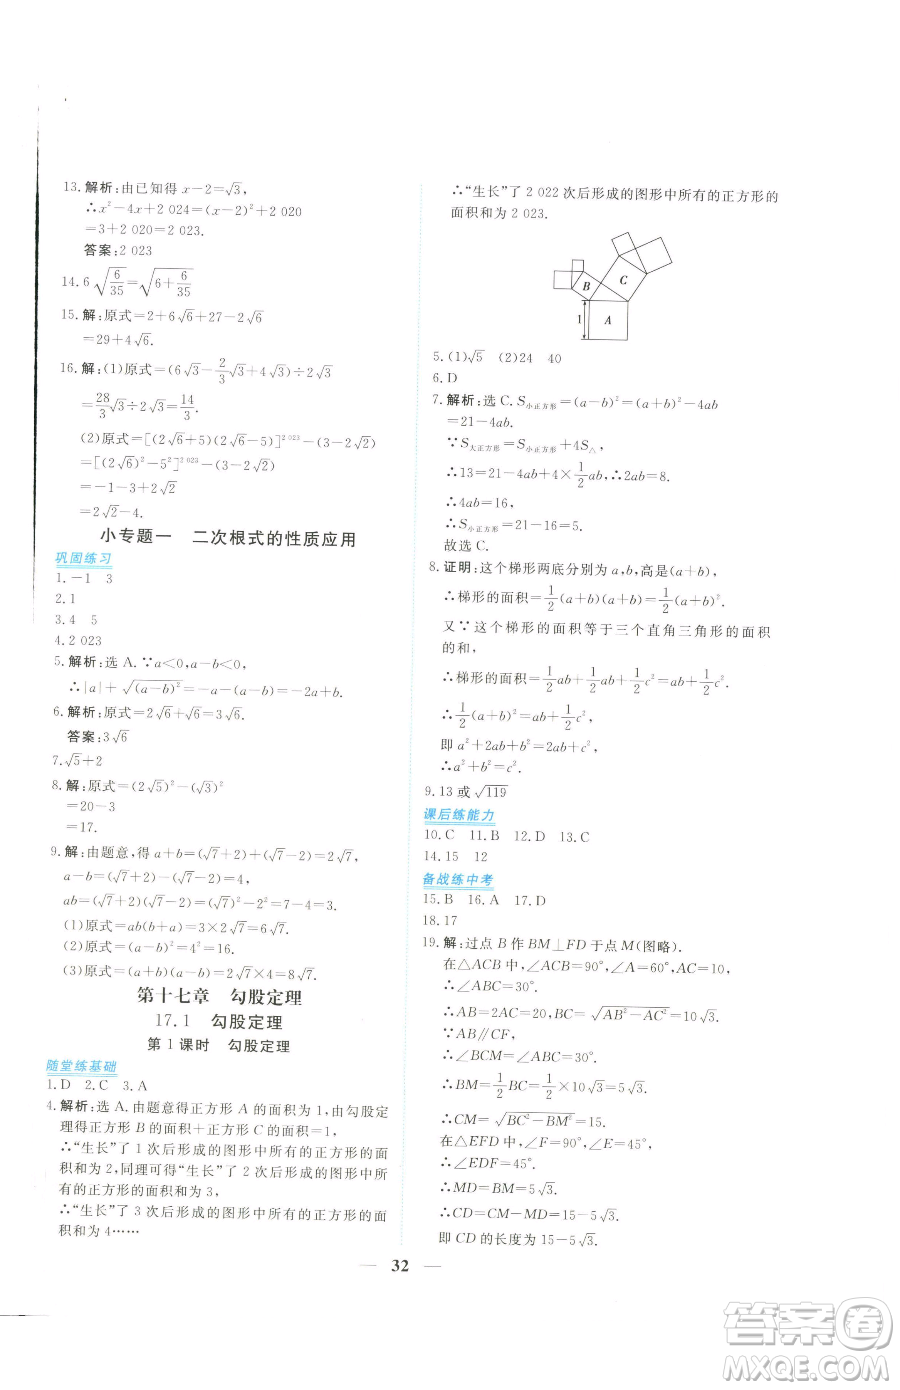 13. 解析:由已知得 x-2=√3,
∴x²-4x+2 024=(x-2)²+2 020
=3+2 020=2 023.
答案:2 023
14. 6√(6/35)=√(6+6/35)
15. 解:原式=2+6√6+27-2√6
=29+4√6.
16. 解:(1)原式=(6√3-2/3√3+4√3)÷2√3
=28/3√3÷2√3=14/3.
(2)原式=[(2√6+5)(2√6-5)]^2 023-(3-2√2)
=[(2√6)²-5²]^2 023-(3-2√2)
=-1-3+2√2
=2√2-4.
小专题一 二次根式的性质应用
巩固练习
1. -1 3
2. 1
3. 4 5
4. 2 023
5. 解析:选 A. ∵a<0,a-b<0,
∴|a|+√(a-b)²=-a-(a-b)=-2a+b.
6. 解析:原式=2√6+√6=3√6.
答案:3√6
7. √5+2
8. 解:原式=(2√5)²-(√3)²
=20-3
=17.
9. 解:由题意,得 a+b=(√7+2)+(√7-2)=2√7,
a-b=(√7+2)-(√7-2)=4,
ab=(√7+2)(√7-2)=7-4=3,
(1)原式=ab(b+a)=3×2√7=6√7.
(2)原式=(a-b)²=4²=16.
(3)原式=(a+b)(a-b)=2√7×4=8√7.
第十七章 勾股定理
17.1 勾股定理
第 1 课时 勾股定理
随堂练基础
1. D 2. C 3. A
4. 解析:选 A. 由题意得正方形 A 的面积为 1,由勾股定
理得正方形 B 的面积+正方形 C 的面积=1,
∴“生长”了 1 次后形成的图形中所有的正方形的面
积和为 2,同理可得“生长”了 2 次后形成的图形中所
有的正方形的面积和为 3,
∴“生长”了 3 次后形成的图形中所有的正方形的面
积和为 4……
∴“生长”了 2 022 次后形成的图形中所有的正方形的
面积和为 2 023.
B C
1 A
5. (1)√5 (2)24 40
6. D
7. 解析:选 C. S小正方形=(a-b)²=(a+b)²-4ab
=21-4ab.
∵S大正方形=S小正方形+4S△,
∴13=21-4ab+4×1/2ab,∴2ab=8.
∴4ab=16.
∴S小正方形=21-16=5.
故选 C.
8. 证明:这个梯形两底分别为 a,b,高是(a+b),
∴梯形的面积=1/2(a+b)(a+b)=1/2(a+b)².
又∵这个梯形的面积等于三个直角三角形的面积
的和,
∴梯形的面积=1/2ab+1/2ab+1/2c².
∴1/2(a+b)²=ab+1/2c²,
即 a²+2ab+b²=2ab+c²,
∴a²+b²=c².
9. 13 或√119
课后练能力
10. C 11. B 12. D 13. C
14. 15 12
备战练中考
15. B 16. A 17. D
18. 17
19. 解:过点 B 作 BM⊥FD 于点 M(图略).
在△ACB 中,∠ACB=90°,∠A=60°,
∴∠ABC=30°,
∴AB=2AC=20,BC=√(AB²-AC²)=10√3.
∵AB∥CF,
∴∠BCM=∠ABC=30°,
∴BM=1/2BC=1/2×10√3=5√3,
∴CM=√(BC²-BM²)=15,
在△EFD 中,∠F=90°,∠E=45°,
∴∠EDF=45°,
∴MD=BM=5√3,
∴CD=CM-MD=15-5√3,
即 CD 的长度为 15-5√3.
32
答案圈
MXQE.COM